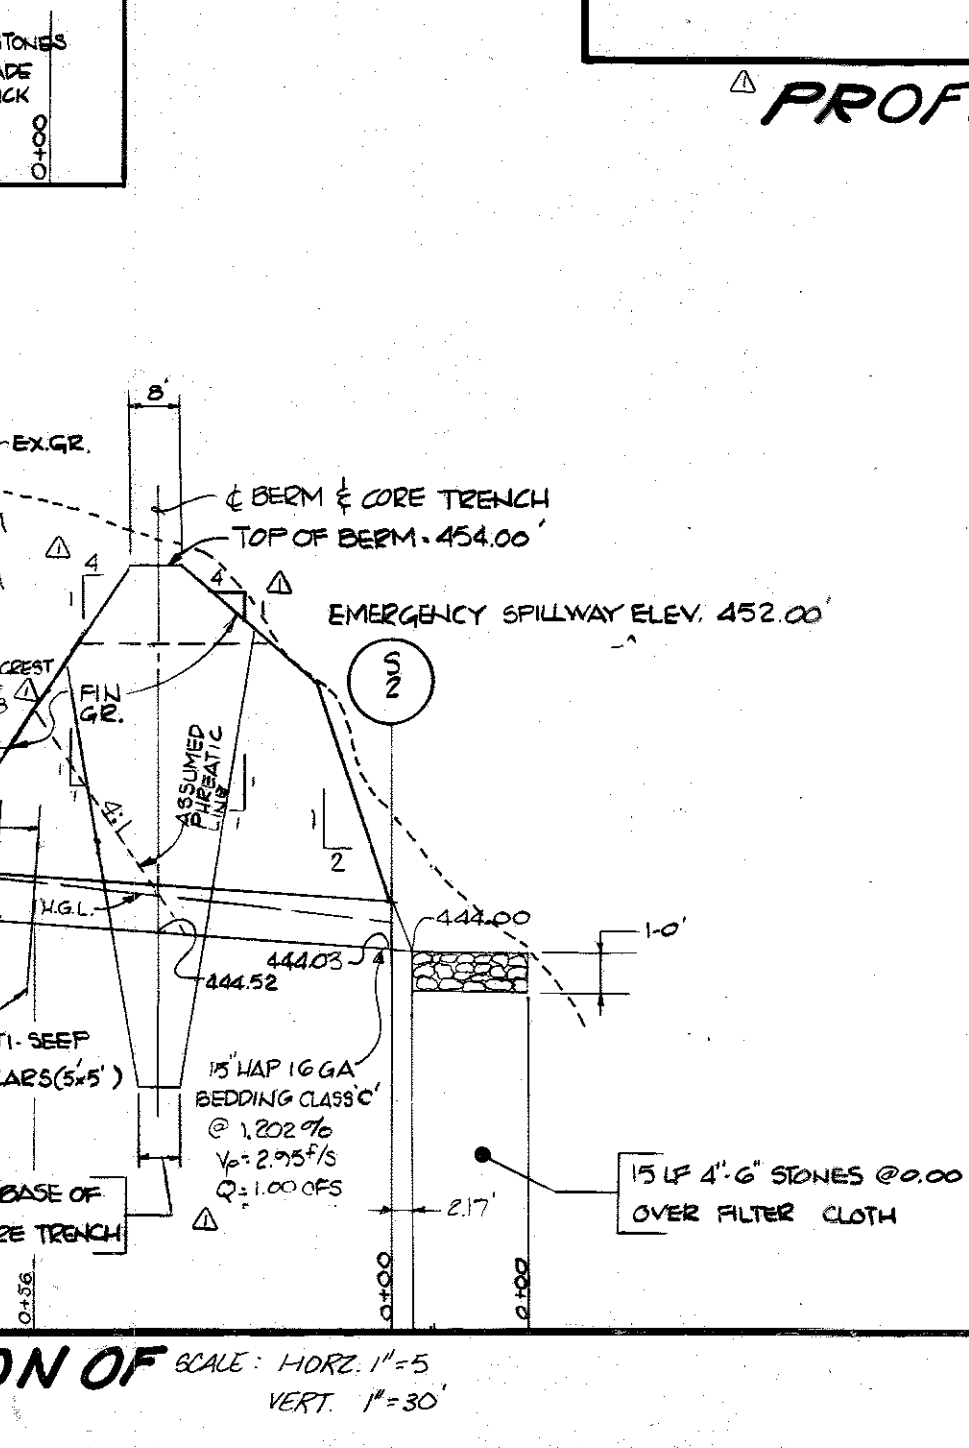 STONES
ADE
CK
0+00
1 PROF
8'
EX.GR.
℄ BERM & CORE TRENCH
TOP OF BERM. 454.00'
1
4
1
4
1
1
EMERGENCY SPILLWAY ELEV. 452.00'
S
2
CREST
1
FIN
GR.
ASSUMED
PHREATIC
LINE
1
1
1
1
4:1
1
2
H.G.L.
444.00
1-0'
444.03
444.52
TI-SEEP
LARS (5'x5')
15" HAP 16 GA
BEDDING CLASS 'C'
@ 1.202 %
Vp = 2.95 f/s
Q = 1.00 CFS
1
BASE OF
RE TRENCH
2.17'
15 LF 4"-6" STONES @ 0.00
OVER FILTER CLOTH
0+56
0+00
0+00
ON OF SCALE: HORZ. 1"=5
VERT. 1"=30'